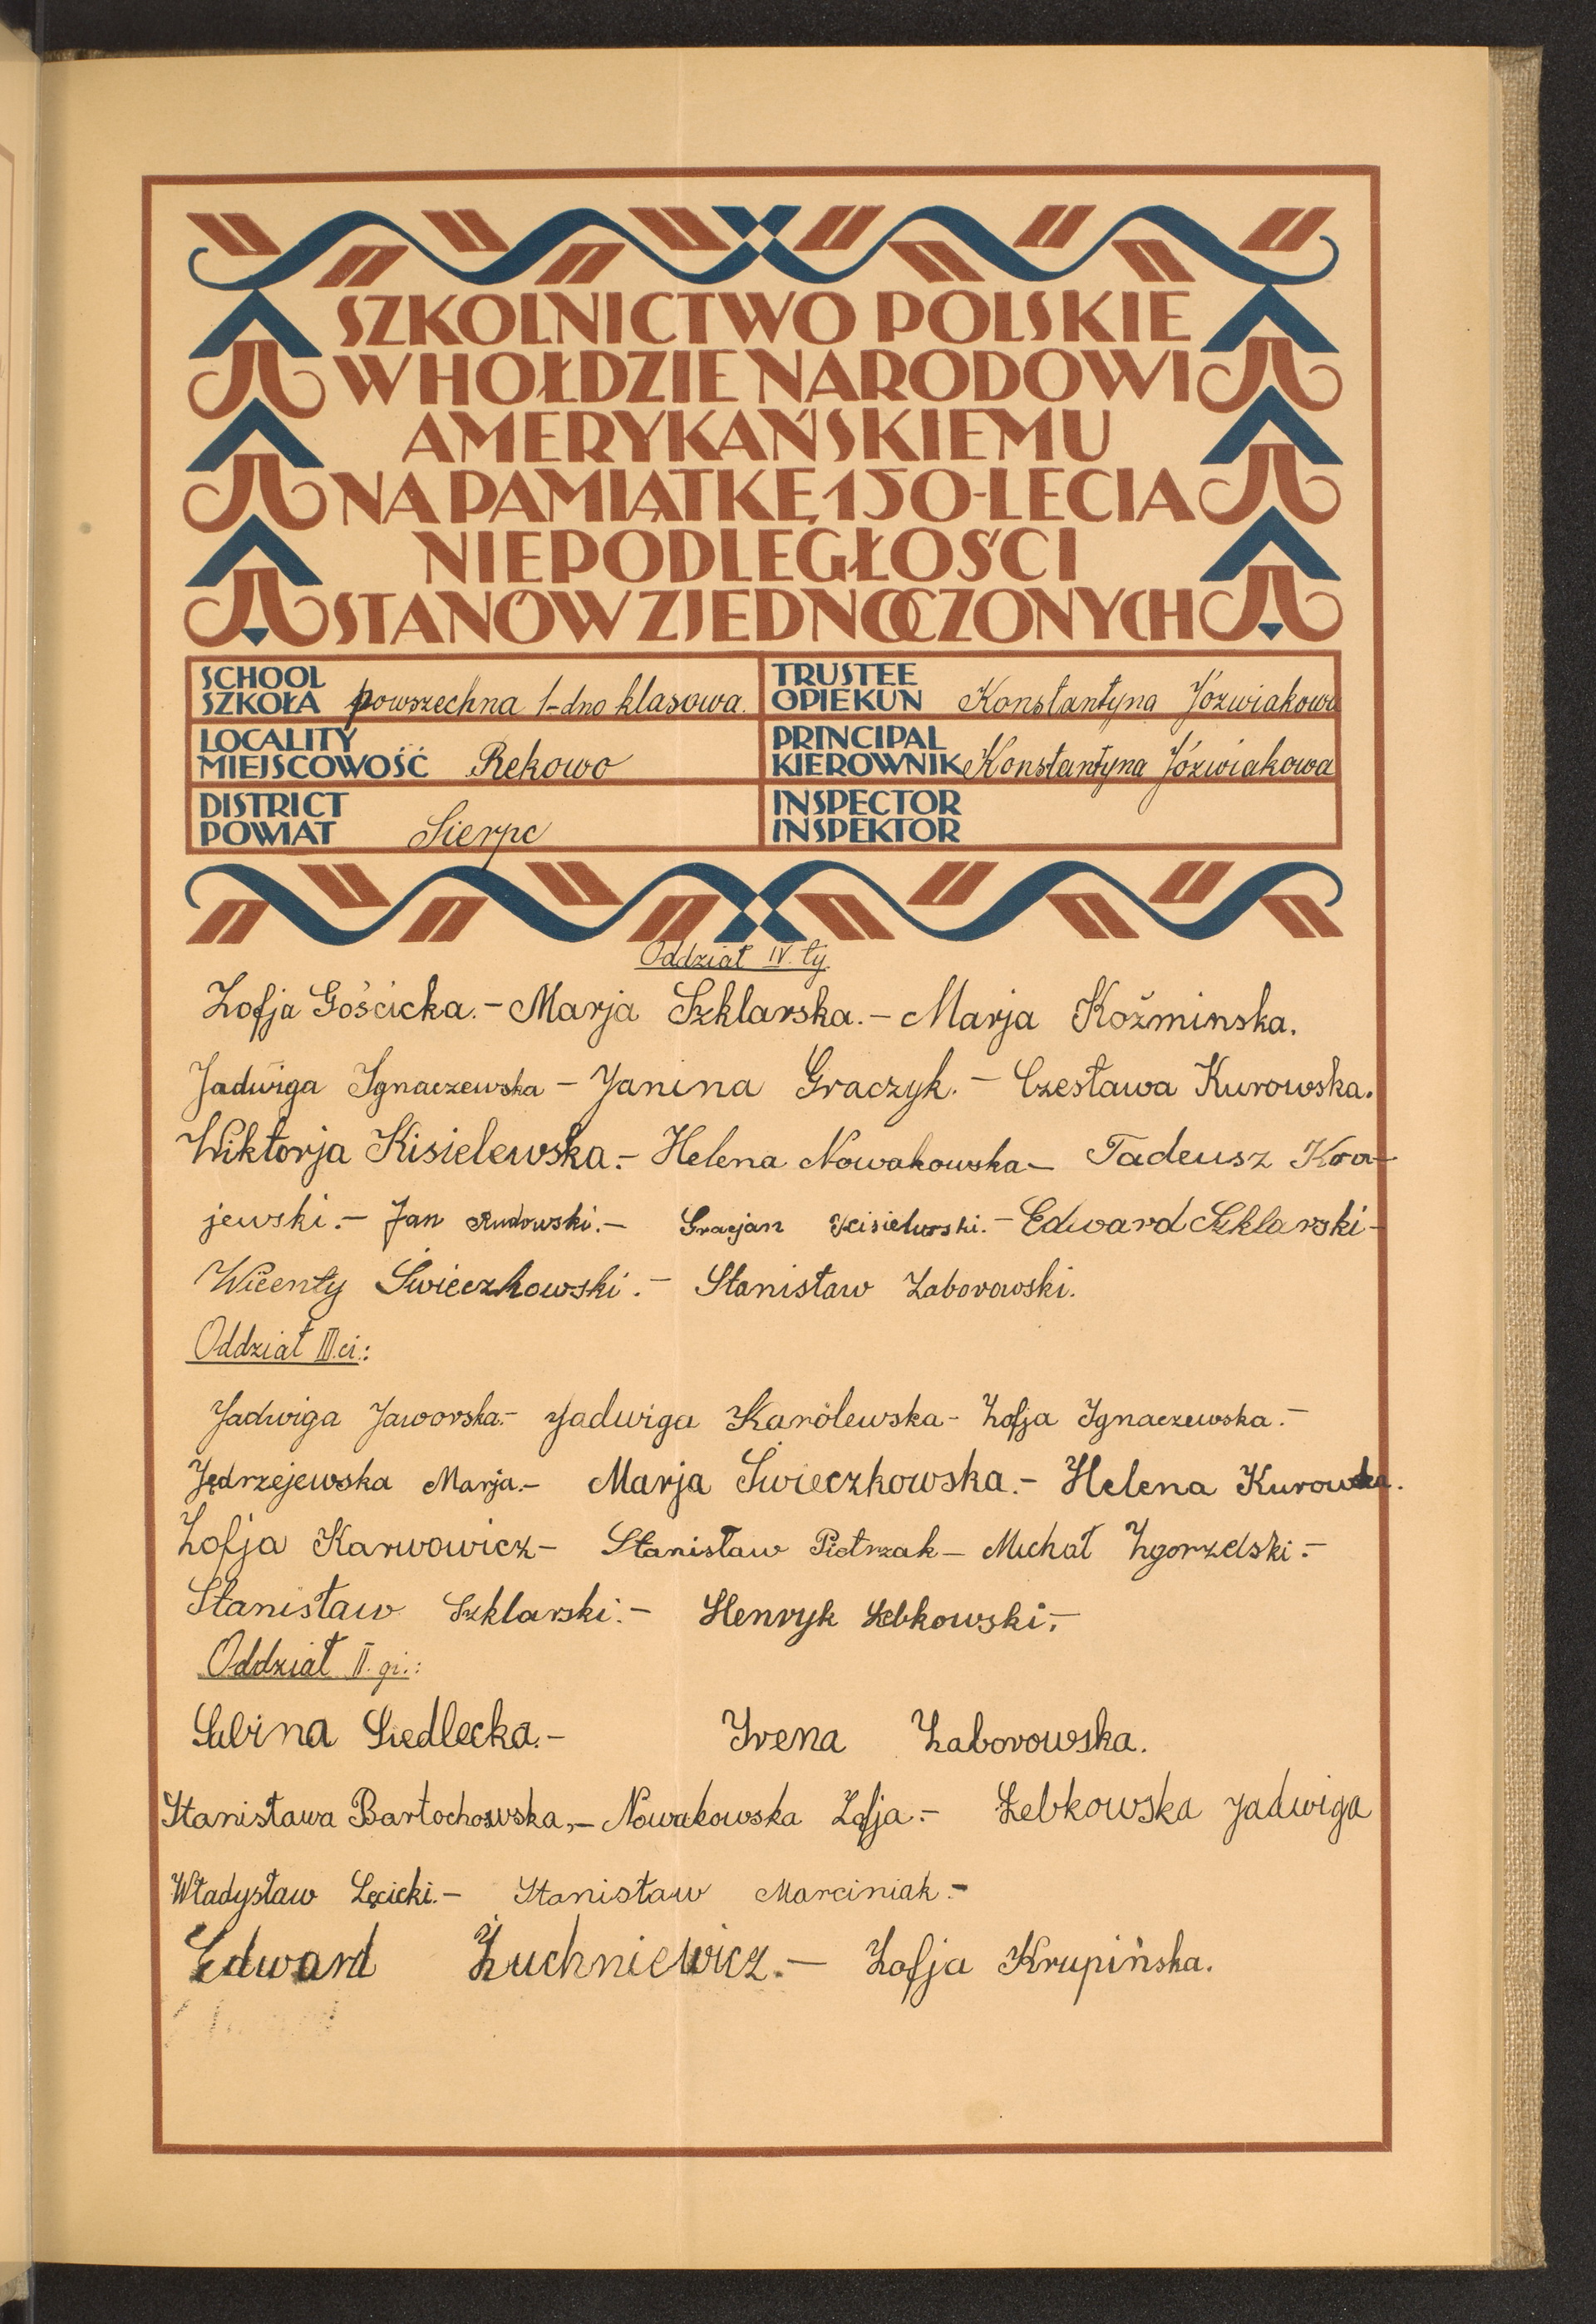 SZKOLNICTWO POLSKIE
W HOŁDZIE NARODOWI
AMERYKAŃSKIEMU
NA PAMIĄTKĘ 150-LECIA
NIEPODLEGŁOŚCI
STANÓW ZJEDNOCZONYCH
SCHOOL
SZKOŁA powszechna 1-dno klasowa.
TRUSTEE
OPIEKUN Konstantyna Józwiakowa
LOCALITY
MIEJSCOWOŚĆ Rekowo
PRINCIPAL
KIEROWNIK Konstantyna Józwiakowa
DISTRICT
POWIAT Sierpc
INSPECTOR
INSPEKTOR
Oddział IV.ty
Zofja Gościcka.- Marja Szklarska.- Marja Koźminska.
Jadwiga Ignaczewska - Janina Graczyk.- Czesława Kurowska.
Wiktorja Kisielewska.- Helena Nowakowska- Tadeusz Kra-
jewski.- Jan Rudowski.- Gracjan Kisielewski.- Edward Szklarski-
Wicenty Świeczkowski.- Stanisław Zaborowski.
Oddział III.ci.:
Jadwiga Jaworska.- Jadwiga Karólewska- Zofja Ignaczewska.-
Jędrzejewska Marja.- Marja Świeczkowska.- Helena Kurowska.
Zofja Karwowicz- Stanisław Pietrzak- Michał Zgorzelski.-
Stanisław Szklarski.- Henryk Łebkowski.-
Oddział II.gi.:
Sabina Siedlecka.- Irena Zaborowska.
Stanisława Bartochowska,- Nowakowska Zofja.- Łebkowska Jadwiga
Władysław Łęcicki.- Stanisław Marciniak.-
Edward Żuchniewicz.- Zofja Krupińska.